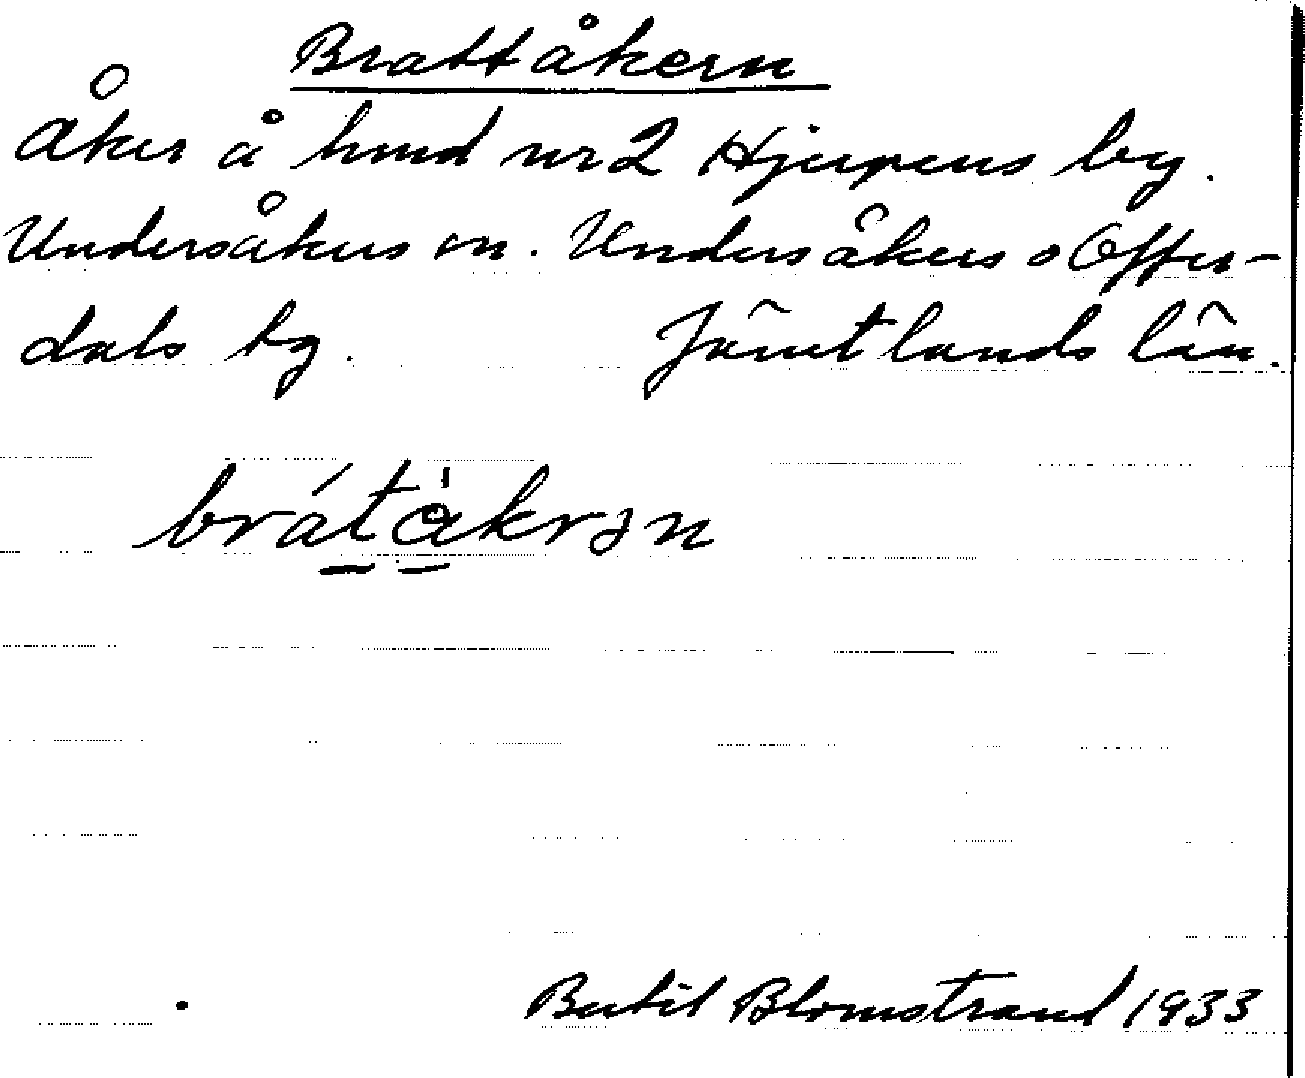 Brattåkern
Åker å hmd nr 2 Hjerpens by.
Undersåkers sn. Undersåkers o Offer-
dals tg. Jämtlands län.
brátåkrən
Bertil Blomstrand 1933